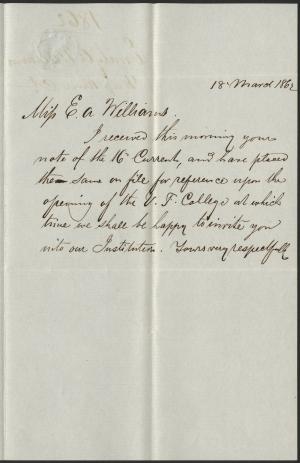 18 March 1862
Miss E. A. Williams.
I received this morning your
note of the 16 Current, and have placed
the same on file for reference upon the
opening of the V. F. College at which
time we shall be happy to invite you
into our Institution. Yours very respectfully
1862